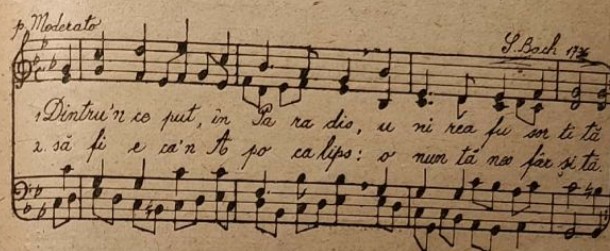 p. Moderato
S. Bach 1736
1 Dintru'n ce put, în Pa ra dis, u ni rea fu son ti tă
2. să fi e ca'n A po ca lips: o nun tă nes făr și tă.